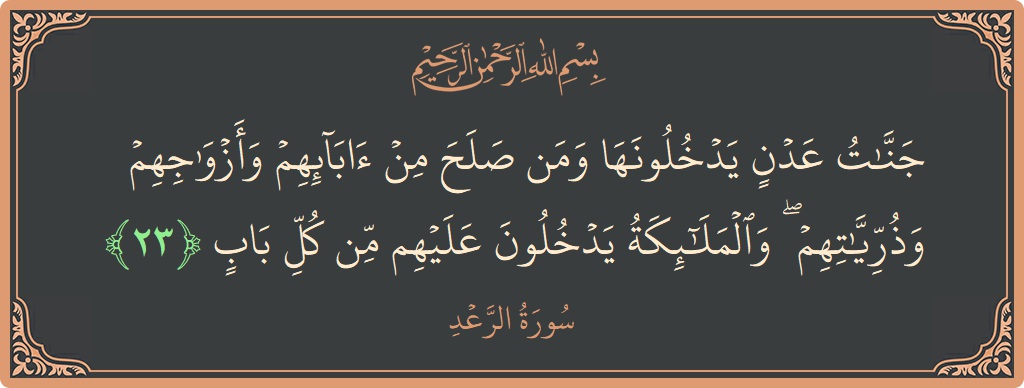 بِسْمِ اللَّهِ الرَّحْمَٰنِ الرَّحِيمِ
جَنَّٰتُ عَدْنٍ يَدْخُلُونَهَا وَمَن صَلَحَ مِنْ ءَابَآئِهِمْ وَأَزْوَٰجِهِمْ
وَذُرِّيَّٰتِهِمْ ۖ وَٱلْمَلَٰٓئِكَةُ يَدْخُلُونَ عَلَيْهِم مِّن كُلِّ بَابٍ ﴿٢٣﴾
سُورَةُ الرَّعْدِ